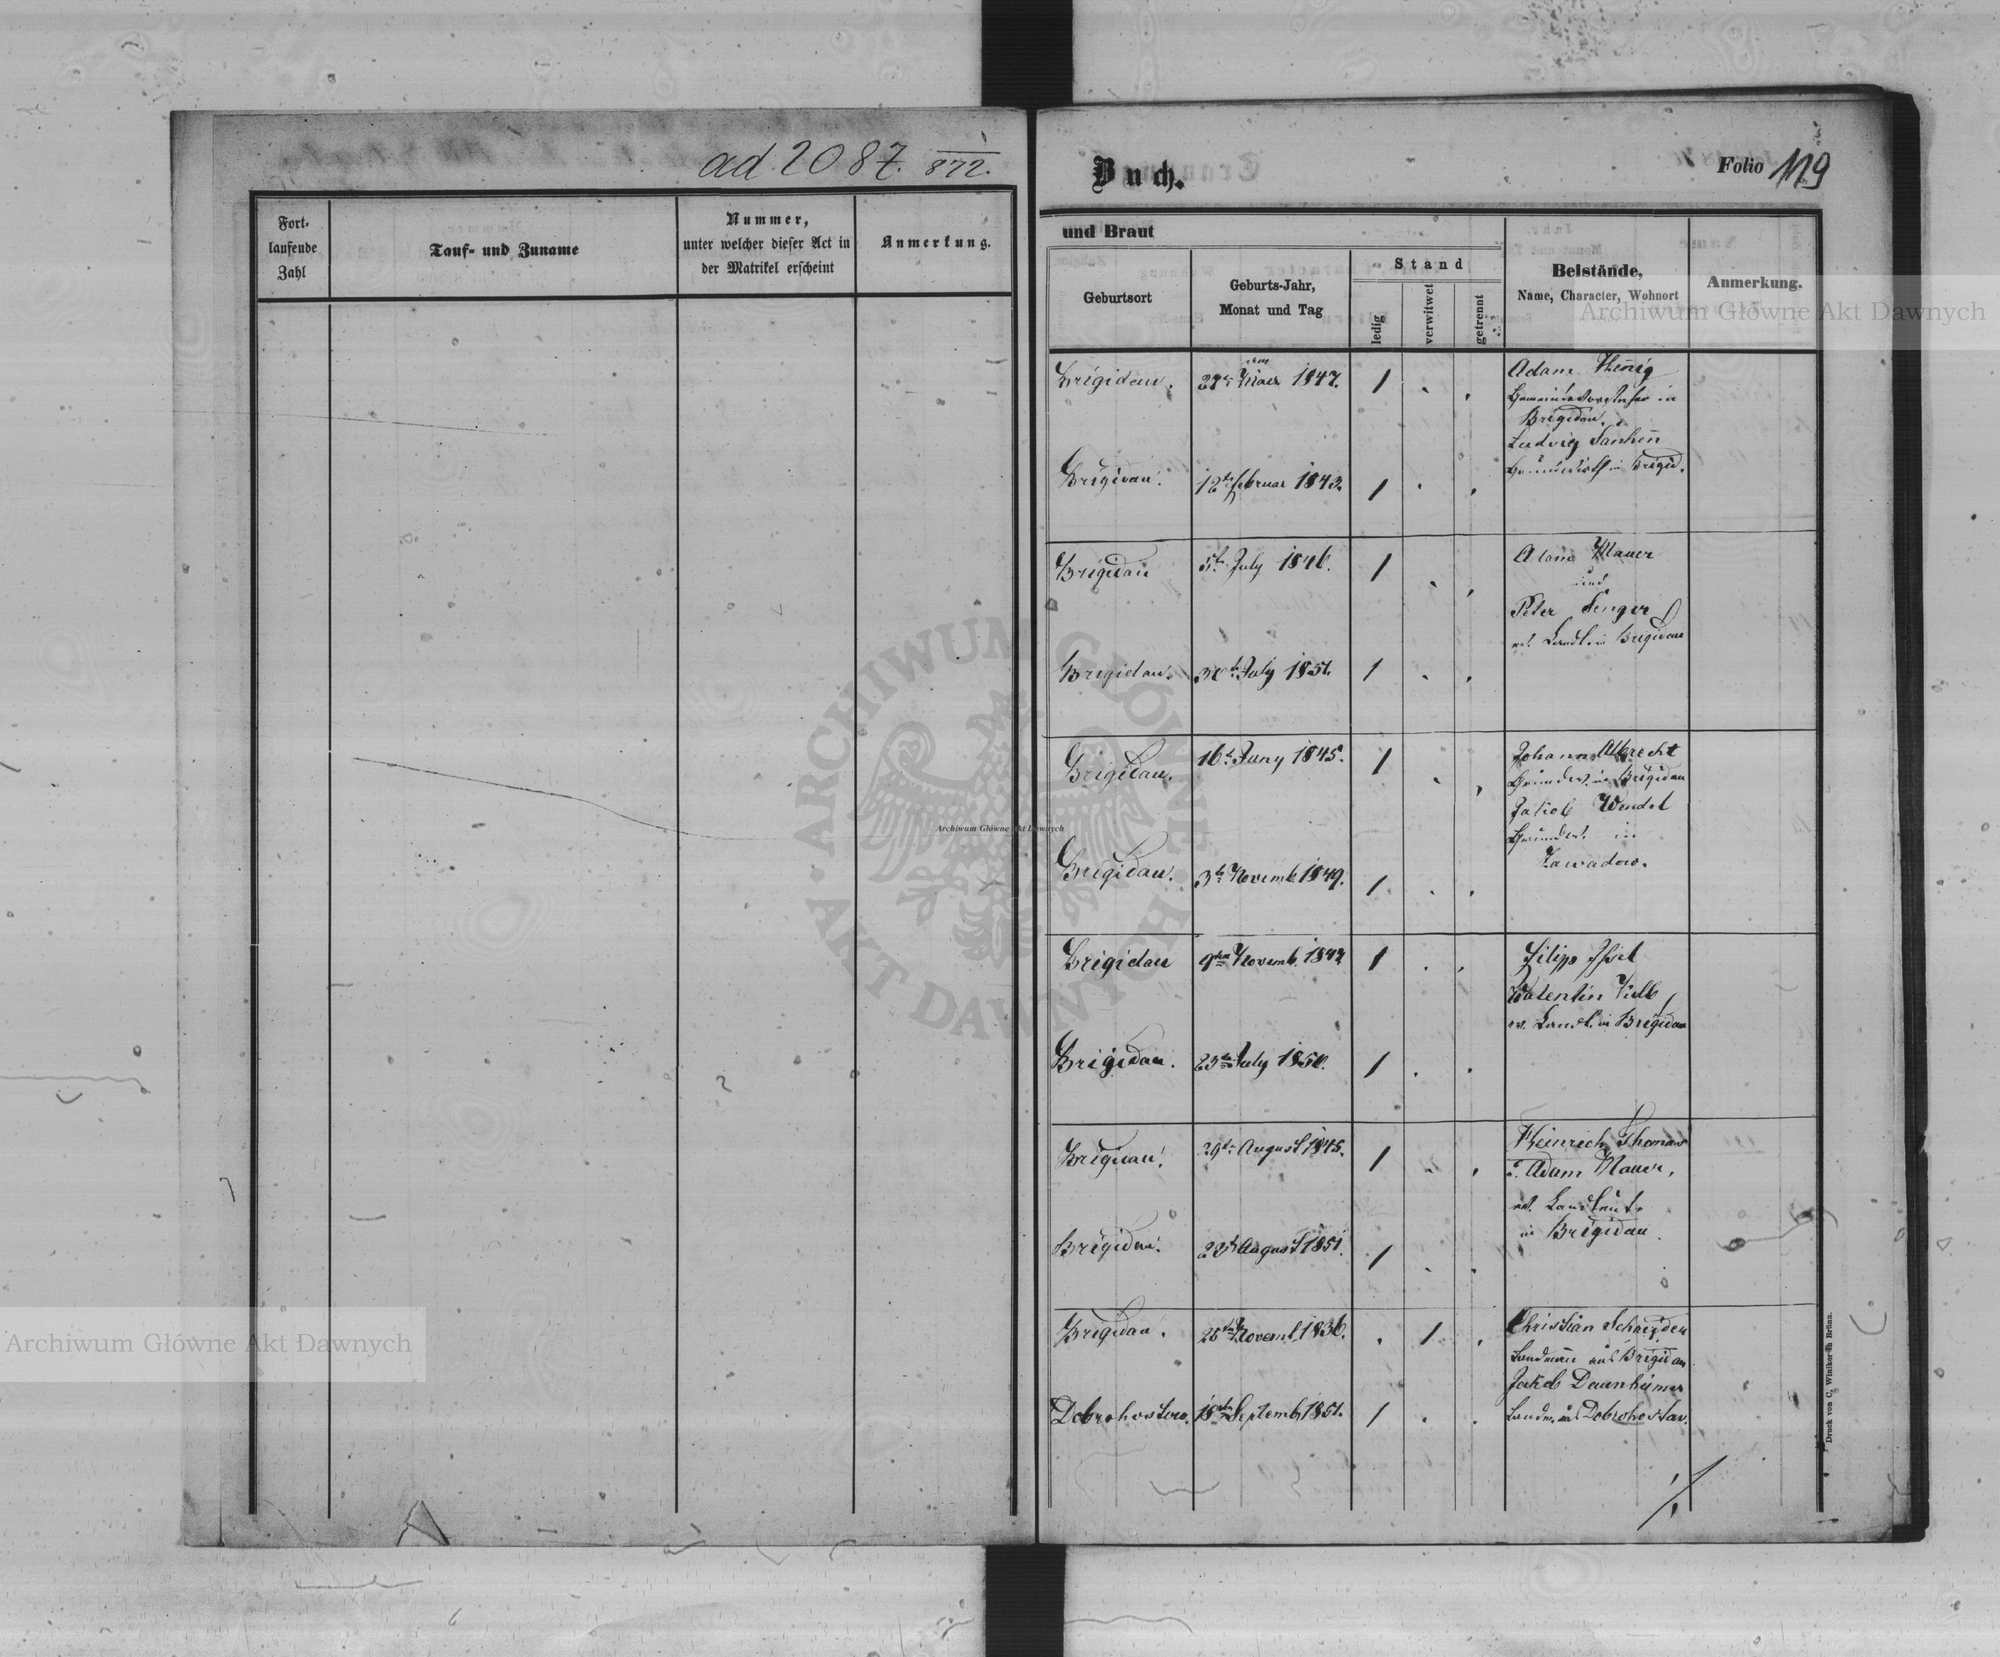 ad 2087. 872.
Fort-
laufende
Zahl
Tauf- und Zuname
Nummer,
unter welcher dieser Act in
der Matrikel erscheint
Anmerkung.
Buch.
Folio 119
und Braut
Geburtsort
Geburts-Jahr,
Monat und Tag
Stand
ledig
verwitwet
getrennt
Beistände,
Name, Character, Wohnort
Anmerkung.
Brigidau. 1847. 1
Adam
Gemeindevorsteher in
Brigidau.
Ludvig
Brigidau. 12 Februar 1843. 1
Grundwirth in Brigid.
Brigidau 5t July 1846. 1
Adam Mauer
und
Peter Senger
ev. Landl. in Brigidau
Brigidau. 30t July 1851. 1
Brigidau. 16t Juny 1845. 1
Johann Albrecht
Grundw. in Brigidau
Jakob Wendel
Grundw. in
Zawadow.
Brigidau. 3t Novemb. 1849. 1
Brigidau 9ten Novemb. 1 
Filipp Issel
Valentin
ev. Landl. in Brigidau
Brigidau. 23t July 1850. 1
Brigidau. 29t August 1845. 1
Heinrich Thomas
u. Adam Mauer,
ev. Landleute
in Brigidau.
Brigidau. August 1851. 1
Brigidau. Novemb. 1836. 1
Christian Schneider
Landmann aus Brigidau
Jakob Daunheimer
Dobrohostow. 18ten Septemb. 1851. 1
Landm. aus Dobrohostow.
Druck von C. Winiker in Brünn.
Archiwum Główne Akt Dawnych
Archiwum Główne Akt Dawnych
Archiwum Główne Akt Dawnych
ARCHIWUM GŁÓWNE AKT DAWNYCH